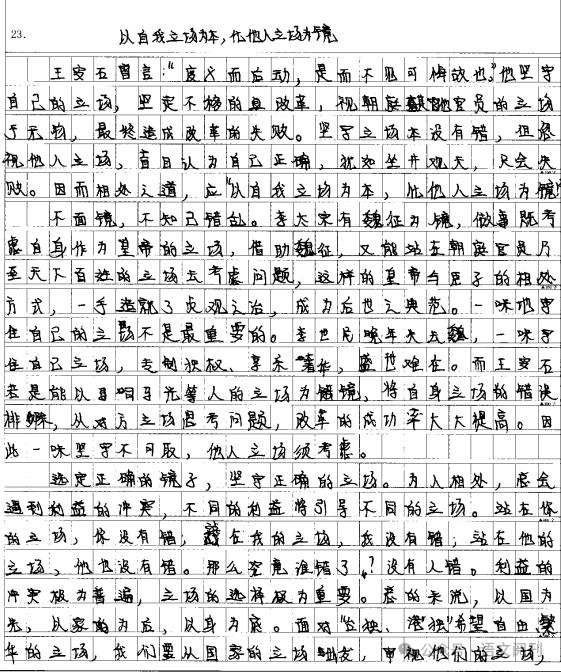 23.
以自我立场为本,化他人立场为镜
王安石曾言:“度义而后动,是而不见可悔故也。”他坚守
自己的立场,坚定不移的 改革,视朝廷其他官员的立场
于无物,最终造成改革的失败。坚守立场本没有错,但忽
视他人立场,盲目认为自己正确,犹如坐井观天,只会失
败。因而相处之道,应“以自我立场为本,化他人立场为镜”
不面镜,不知己错乱。李太宗有魏征为镜,做事既考
虑自身作为皇帝的立场,借助魏征,又能站在朝廷官员乃
至天下百姓的立场去考虑问题,这样的皇帝与臣子的相处
方式,一手造就了贞观之治,成为后世之典范。一味地守
住自己的立场不是最重要的。李世民晚年失去魏,一味守
住自己立场,专制独权、享乐奢华,盛世难在。而王安石
若是能以司马光等人的立场为镜,将自身立场的错误
排 ,从对方立场思考问题,改革的成功率大大提高。因
此一味坚守不可取,他人立场须考虑。
选定正确的镜子,坚守正确的立场。为人相处,总会
遇到利益的冲突,不同的利益将引导不同的立场。站在你
的立场,你没有错;站在我的立场,我没有错;站在他的
立场,他也没有错。那么究竟谁错了?没有人错。利益的
冲突极为普遍,立场的选择极为重要。 的 ,以国为
先,以家为后,以身为底。面对“台独、港独”希望自由
的立场,我们要从国家的立场 ,审视他们的立场,
公众号